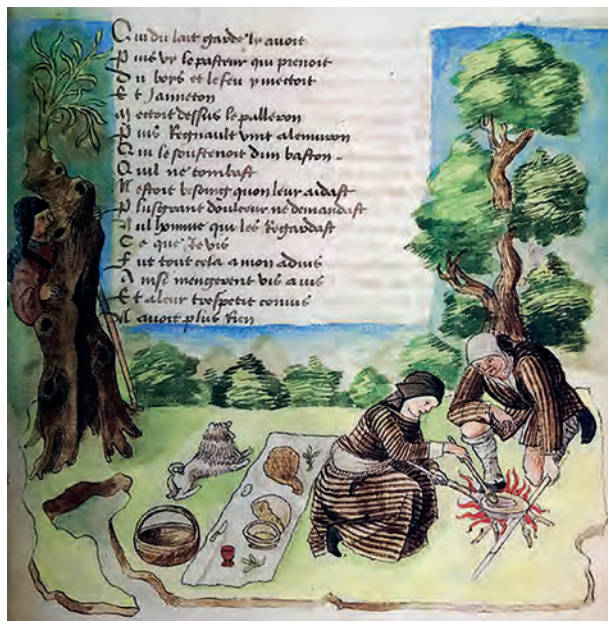 Qui du lait garde le avoit
Puis vy le pasteur qui prenoit
Du boys et le feu y mettoit
Et Janneton
Mettoit dessus le paelleron
Puis Regnault vint alenviron
Qui le soustenoit dun baston
Quil ne tombast
Nestoit besoing quon leur aidast
Plus grant doulceur ne demandast
Nul homme qui les Regardast
Ce que Je vis
Fut tout cela a mon advis
Ainsi mengerent vis a vis
Et a leur trespetit convis
Navoit plus Rien